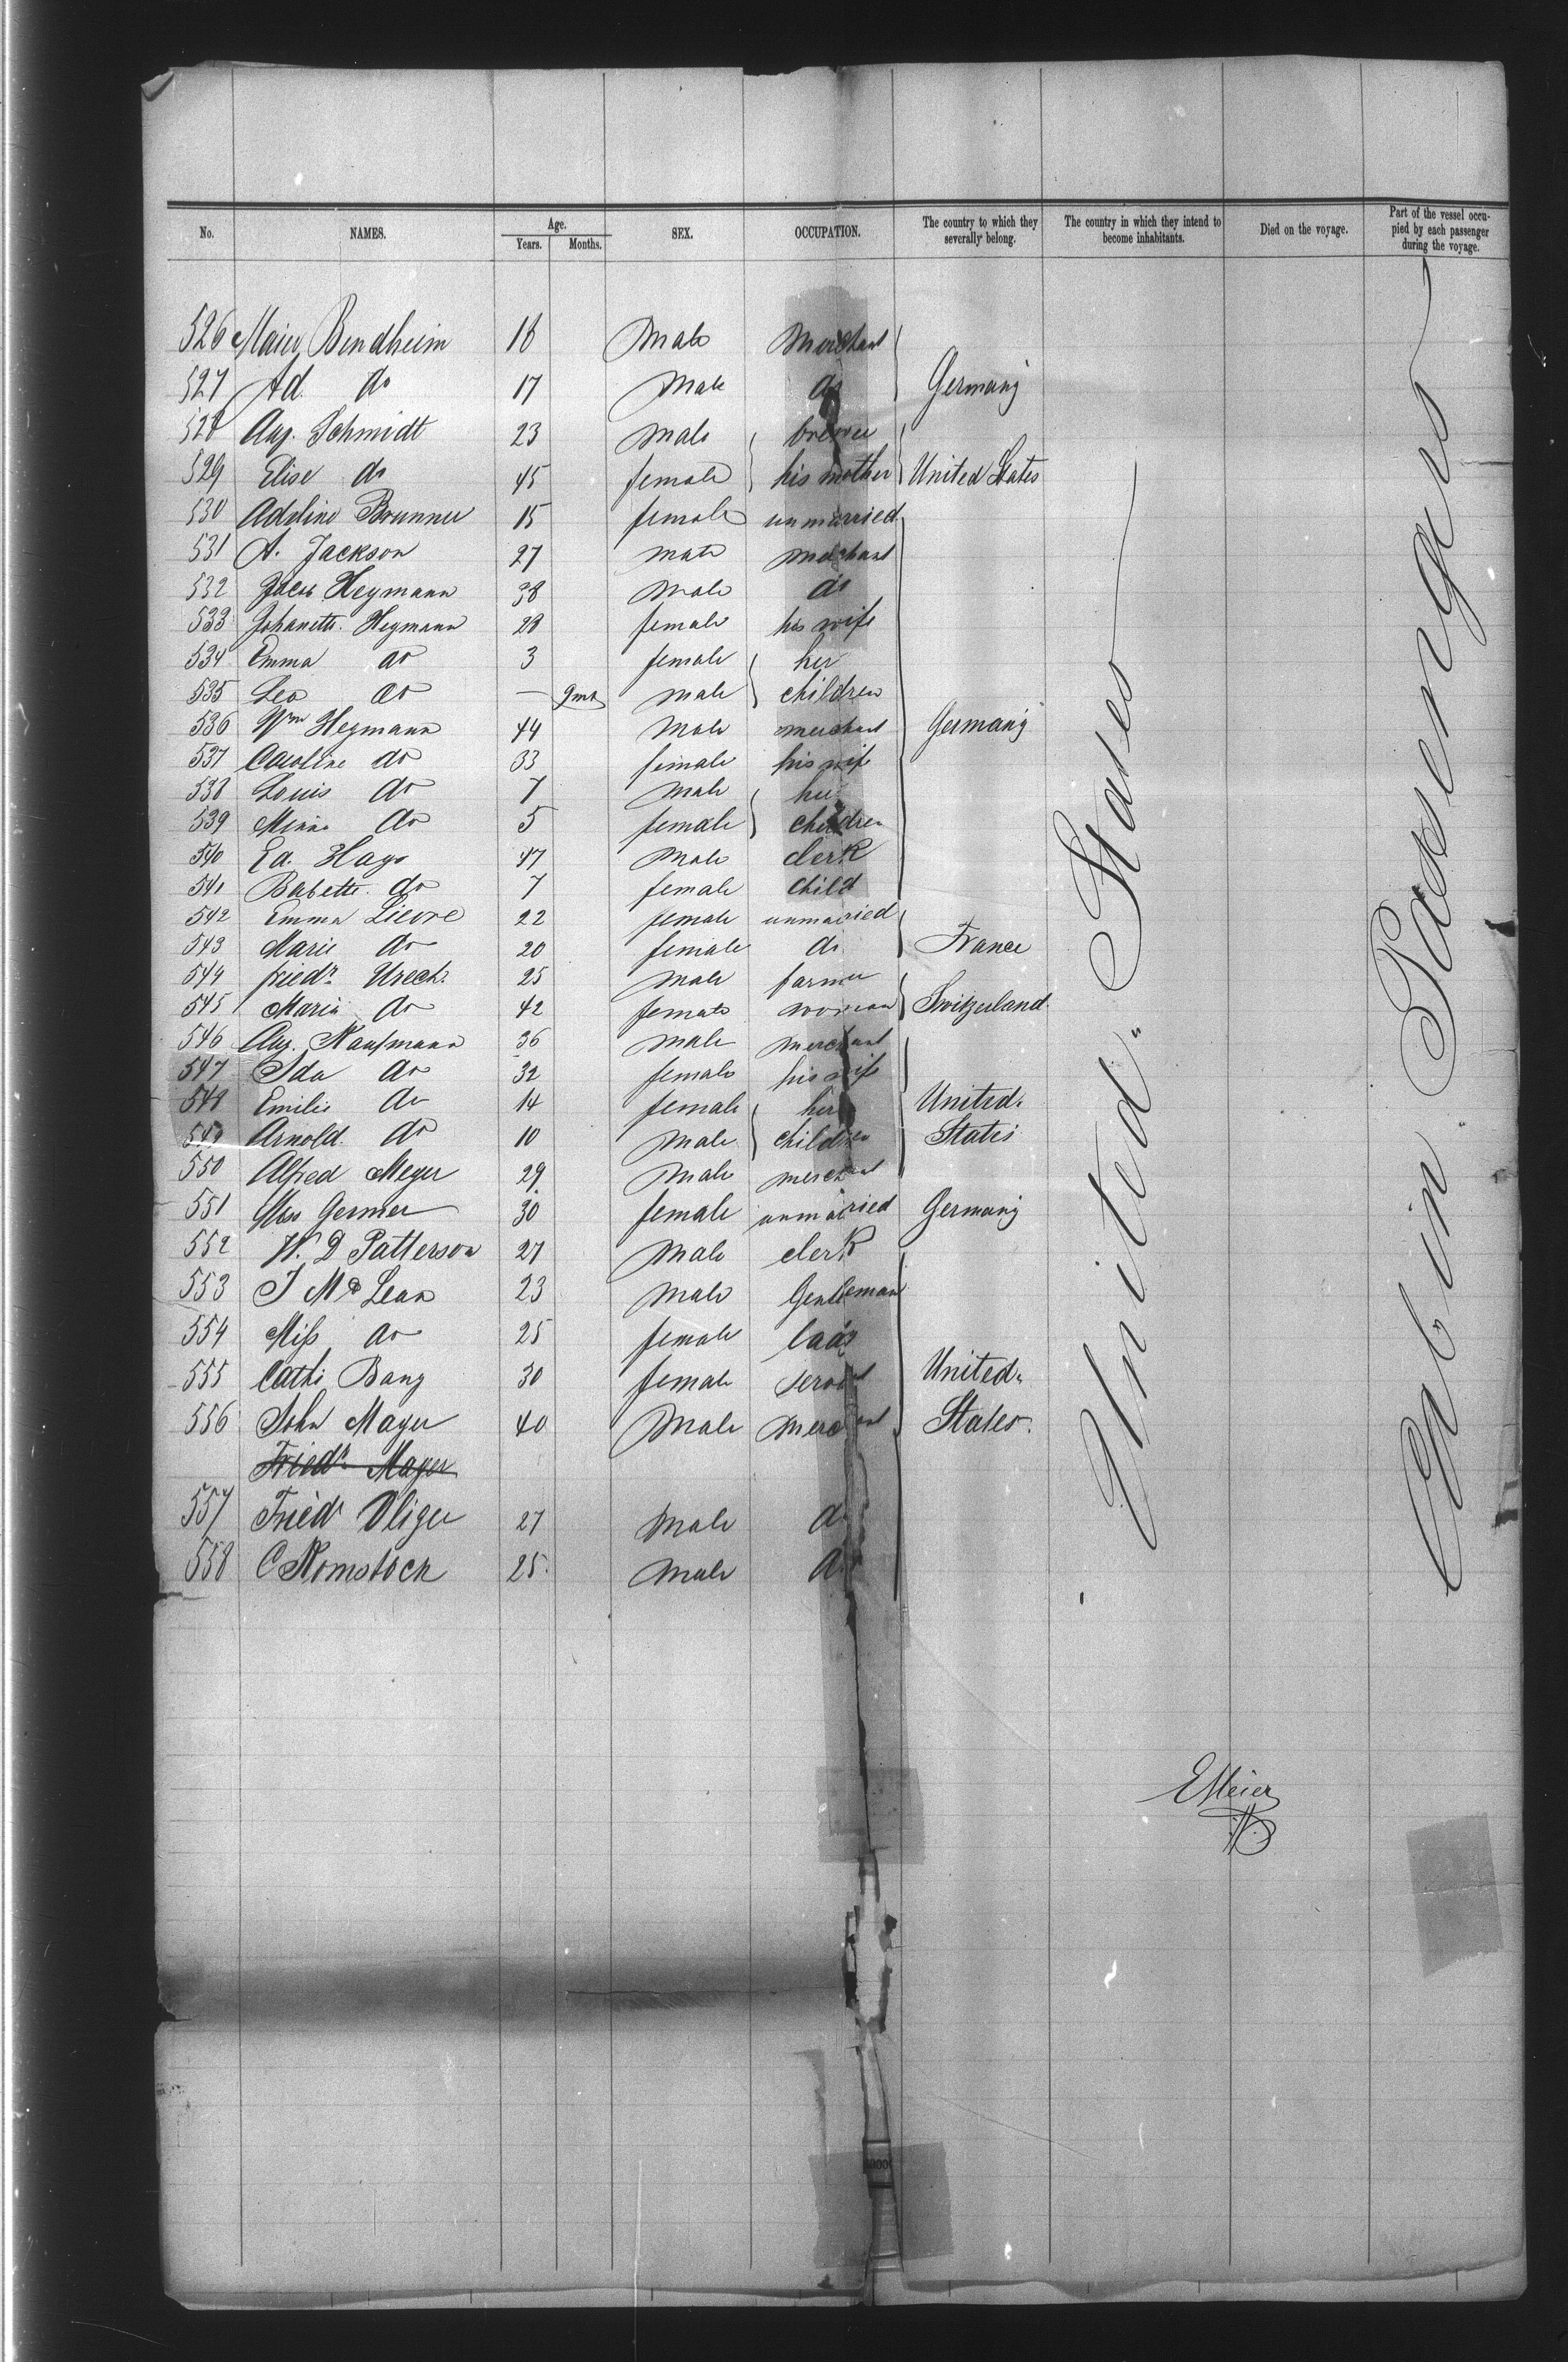 No. NAMES. Age. Years. Months. SEX. OCCUPATION. The country to which they severally belong. The country in which they intend to become inhabitants. Died on the voyage. Part of the vessel occupied by each passenger during the voyage.
526 Maier Bendheim 18 Male Merchant
527 Ad. do 17 Male do Germany
528 Aug. Schmidt 23 Male brewer
529 Elise do 45 female his mother United States
530 Adeline Brunner 15 female unmarried
531 A. Jackson 27 male merchant
532 Jacob Heymann 38 male do
533 Johanette. Heymann 28 female his wife
534 Emma do 3 female her
535 Leo do — 9 mts male children
536 Wm Heymann 44 Male merchant Germany
537 Caroline do 33 female his wife
538 Louis do 7 male her
539 Minna do 5 female children
540 Ed. Hays 47 Male clerk
541 Babette. do 7 female child
542 Emma Lievre 22 female unmarried
543 Marie do 20 female do France
544 Friedr. Urech. 25 male farmer
545 Maria do 42 female woman Switzerland.
546 Aug. Kaufmann 36 male merchant
547 Ida do 32 female his wife
548 Emilie do 14 female her United
549 Arnold. do 10 male children States
550 Alfred Meyer 29 male merchant
551 Miss Germer 30 female unmarried Germany
552 W. D Patterson 27 Male clerk
553 J Mc Lean 23 male Gentleman
554 Miss do 25 female lady
555 Cath. Bang 30 female servant United
556 John Mayer 40 Male merchant States.
Friedr. Mayer
557 Friedr Uliger 27 male do
558 C Komstock 25. male do
United States
Cabin Passengers
E Meier